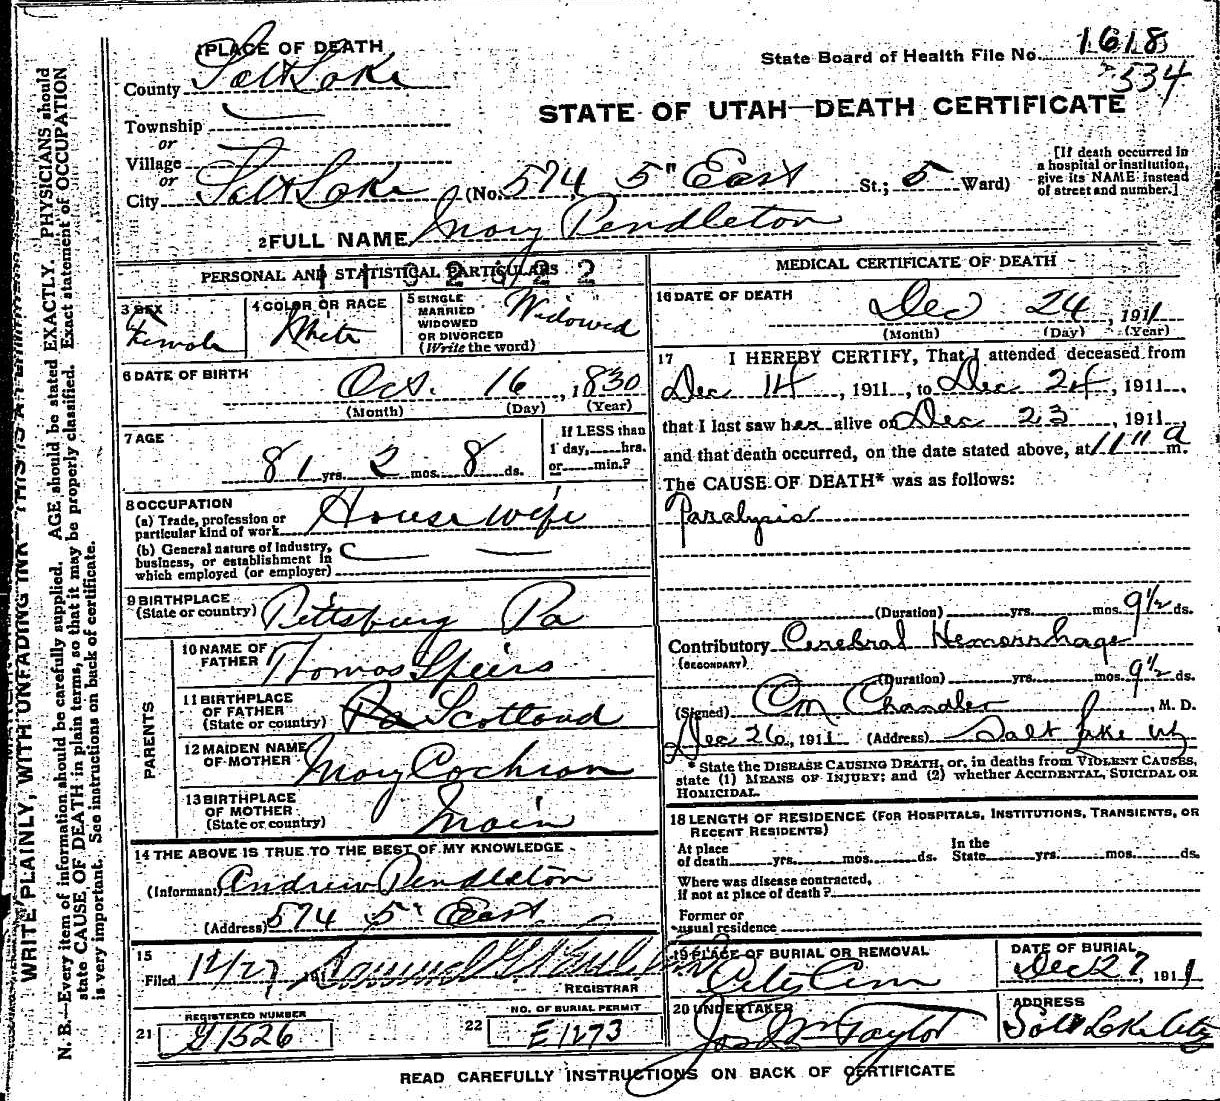 1 PLACE OF DEATH
County Salt Lake
Township
or
Village
or
City Salt Lake (No. 574 5" East St.; 5 Ward)
State Board of Health File No. 1618
534
STATE OF UTAH—DEATH CERTIFICATE
[If death occurred in a hospital or institution, give its NAME instead of street and number.]
2 FULL NAME Mary Pendleton
PERSONAL AND STATISTICAL PARTICULARS
3 SEX Female
4 COLOR OR RACE White
5 SINGLE MARRIED WIDOWED OR DIVORCED (Write the word) Widowed
6 DATE OF BIRTH Oct. 16, 1830
(Month) (Day) (Year)
7 AGE 81 yrs. 2 mos. 8 ds.
If LESS than 1 day, hrs. or min.?
8 OCCUPATION
(a) Trade, profession or particular kind of work House wife
(b) General nature of industry, business, or establishment in which employed (or employer)
9 BIRTHPLACE (State or country) Pittsburg Pa
PARENTS
10 NAME OF FATHER Thomas Speirs
11 BIRTHPLACE OF FATHER (State or country) Pa Scotland
12 MAIDEN NAME OF MOTHER Mary Cochran
13 BIRTHPLACE OF MOTHER (State or country) Main
14 THE ABOVE IS TRUE TO THE BEST OF MY KNOWLEDGE
(Informant) Andrew Pendleton
(Address) 574 5" East
15
Filed 12/27 191 Samuel G.
REGISTRAR
21 REGISTERED NUMBER G1526
22 NO. OF BURIAL PERMIT E1273
MEDICAL CERTIFICATE OF DEATH
16 DATE OF DEATH Dec 24, 1911
(Month) (Day) (Year)
17 I HEREBY CERTIFY, That I attended deceased from
Dec 14, 1911, to Dec 24, 1911,
that I last saw her alive on Dec 23, 1911
and that death occurred, on the date stated above, at 11" a m.
The CAUSE OF DEATH* was as follows:
Paralysis
(Duration) yrs. mos. 9½ ds.
Contributory Cerebral Hemorrhage
(SECONDARY)
(Duration) yrs. mos. 9½ ds.
(Signed) C M Chandler, M. D.
Dec 26, 1911 (Address) Salt Lake Ut
* State the DISEASE CAUSING DEATH, or, in deaths from VIOLENT CAUSES,
state (1) MEANS OF INJURY; and (2) whether ACCIDENTAL, SUICIDAL OR
HOMICIDAL.
18 LENGTH OF RESIDENCE (FOR HOSPITALS, INSTITUTIONS, TRANSIENTS, OR RECENT RESIDENTS)
At place of death yrs. mos. ds. In the State yrs. mos. ds.
Where was disease contracted, if not at place of death?
Former or usual residence
19 PLACE OF BURIAL OR REMOVAL City Cem
DATE OF BURIAL Dec 27, 1911
20 UNDERTAKER Jos Wm Taylor
ADDRESS Salt Lake City
READ CAREFULLY INSTRUCTIONS ON BACK OF CERTIFICATE
WRITE PLAINLY, WITH UNFADING INK—THIS IS A PERMANENT
N. B.—Every item of information should be carefully supplied. AGE should be stated EXACTLY. PHYSICIANS should
state CAUSE OF DEATH in plain terms, so that it may be properly classified. Exact statement of OCCUPATION
is very important. See instructions on back of certificate.